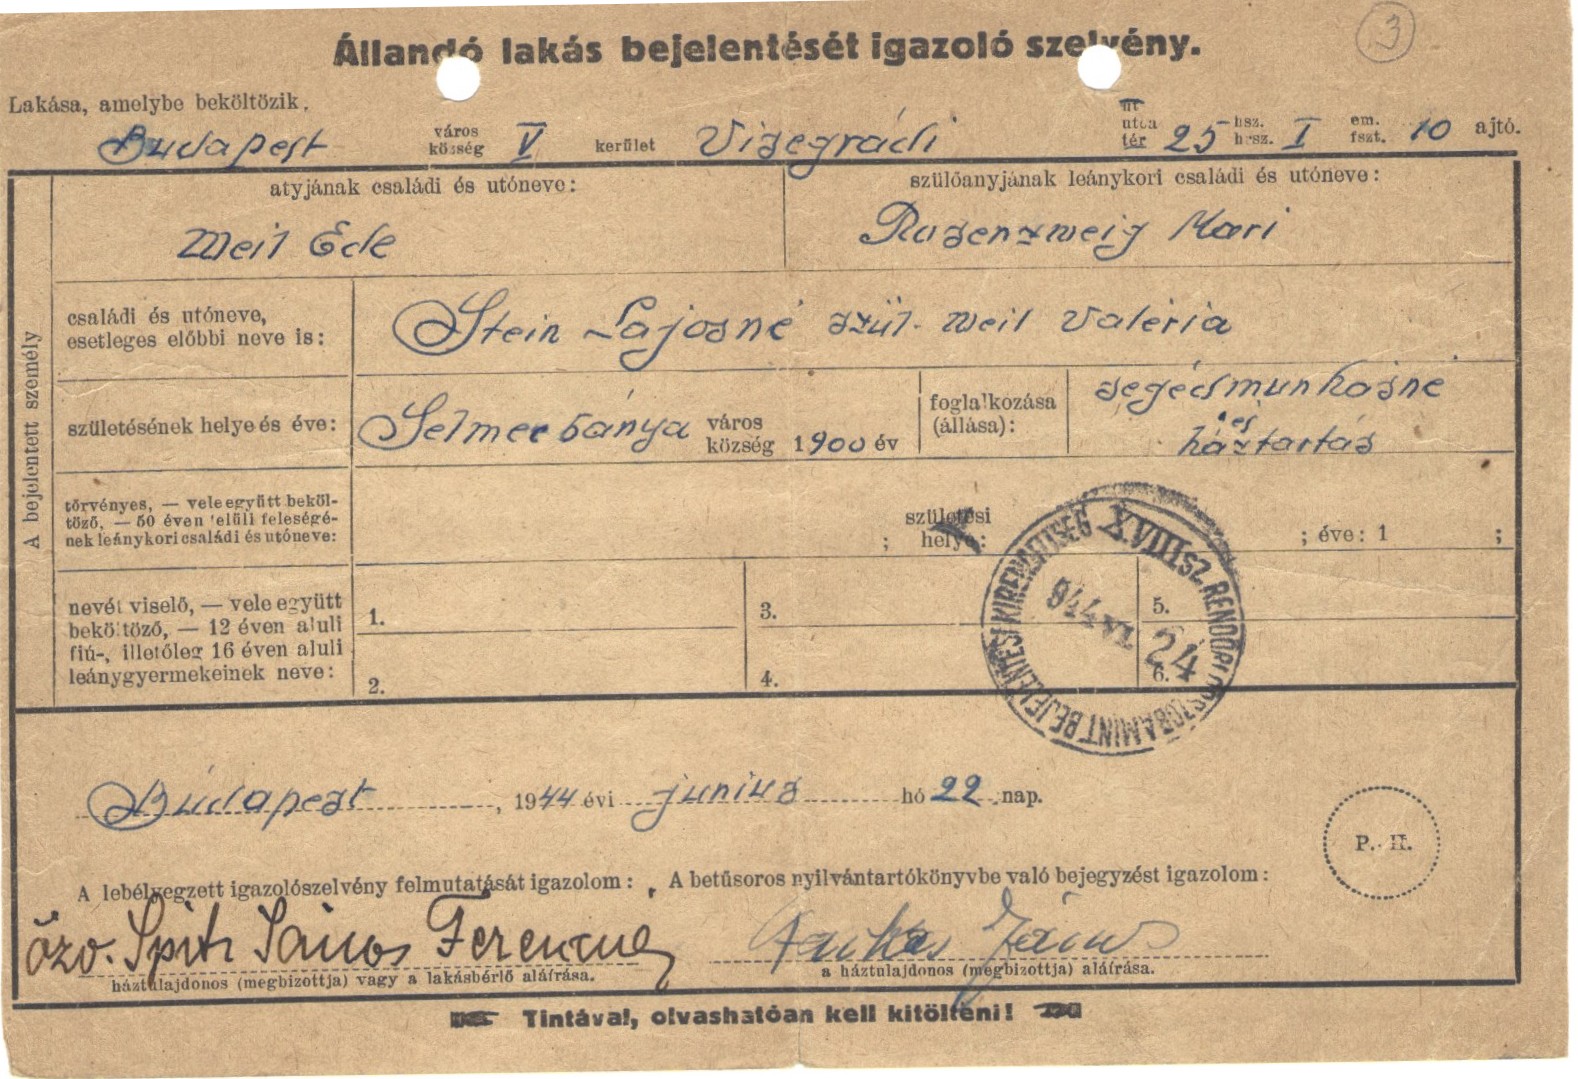 3
Állandó lakás bejelentését igazoló szelvény.
Lakása, amelybe beköltözik.
Budapest város község V kerület Visegrádi út utca tér 25 hsz. hrsz. I em. fszt. 10 ajtó.
A bejelentett személy
atyjának családi és utóneve: szülőanyjának leánykori családi és utóneve:
Weil Ede Rosenzweig Mari
családi és utóneve,
esetleges előbbi neve is: Stein Lajosné szül. Weil Valéria
születésének helye és éve: Selmecbánya város község 1900 év foglalkozása (állása): segédmunkásné és háztartás
törvényes, — vele együtt beköl-
töző, — 50 éven felüli feleségé-
nek leánykori családi és utóneve: ; születési helye: ; éve: 1 ;
nevét viselő, — vele együtt
beköltöző, — 12 éven aluli
fiú-, illetőleg 16 éven aluli
leánygyermekeinek neve:
1. 3. 5.
2. 4. 6.
XVIII SZ. RENDŐRI BEJELENTÉSI KIRENDELTSÉG
944 VI. 24
Budapest, 1944 évi június hó 22 nap.
P. H.
A lebélyegzett igazolószelvény felmutatását igazolom: A betűsoros nyilvántartókönyvbe való bejegyzést igazolom:
özv. Spitz János Ferencné János
háztulajdonos (megbizottja) vagy a lakásbérlő aláírása. a háztulajdonos (megbizottja) aláírása.
Tintával, olvashatóan kell kitölteni!